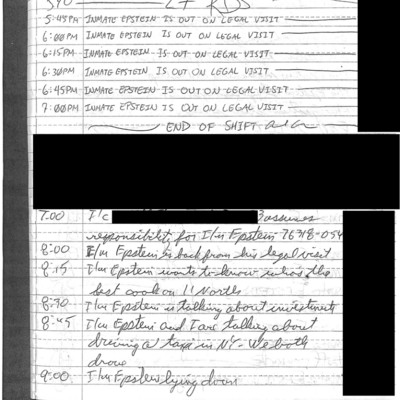 5:45PM INMATE EPSTEIN IS OUT ON LEGAL VISIT
6:00PM INMATE EPSTEIN IS OUT ON LEGAL VISIT
6:15PM INMATE EPSTEIN IS OUT ON LEGAL VISIT
6:30PM INMATE EPSTEIN IS OUT ON LEGAL VISIT
6:45PM INMATE EPSTEIN IS OUT ON LEGAL VISIT
7:00PM INMATE EPSTEIN IS OUT ON LEGAL VISIT
END OF SHIFT
7:00 I/c assumes
responsibility for I/m Epstein 76318-054
8:00 I/m Epstein is back from his legal visit
8:15 I/m Epstein wants to know who's the
best cook on 11 North
8:30 I/m Epstein is talking about investments
8:45 I/m Epstein and I are talking about
driving a taxi in NY - We both
drove
9:00 I/m Epstein lying down